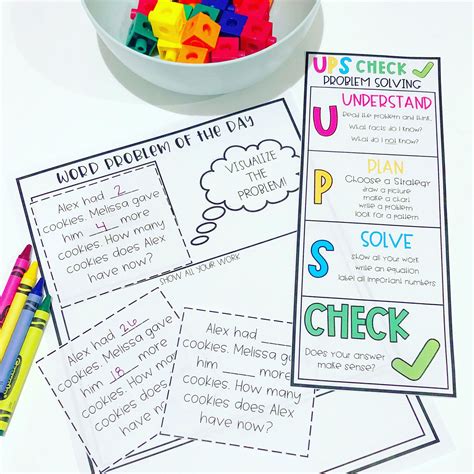 WORD PROBLEM OF THE DAY
Alex had 2
cookies. Melissa gave
him 4 more
cookies. How many
cookies does Alex
have now?
VISUALIZE
THE
PROBLEM!
SHOW ALL YOUR WORK
Alex had 26
cookies. Melissa gave
him 18 more
cookies. How many
cookies does Alex
have now?
Alex had ____
cookies. Melissa gave
him ____ more
cookies. How many
cookies does Alex
have now?
UPS CHECK
PROBLEM SOLVING
U
UNDERSTAND
Read the problem and think.
What facts do I know?
What do I not know?
P
PLAN
Choose a Strategy
draw a picture
make a chart
write a problem
look for a pattern
S
SOLVE
show all your work
write an equation
label all important numbers
CHECK
Does your answer
make sense?